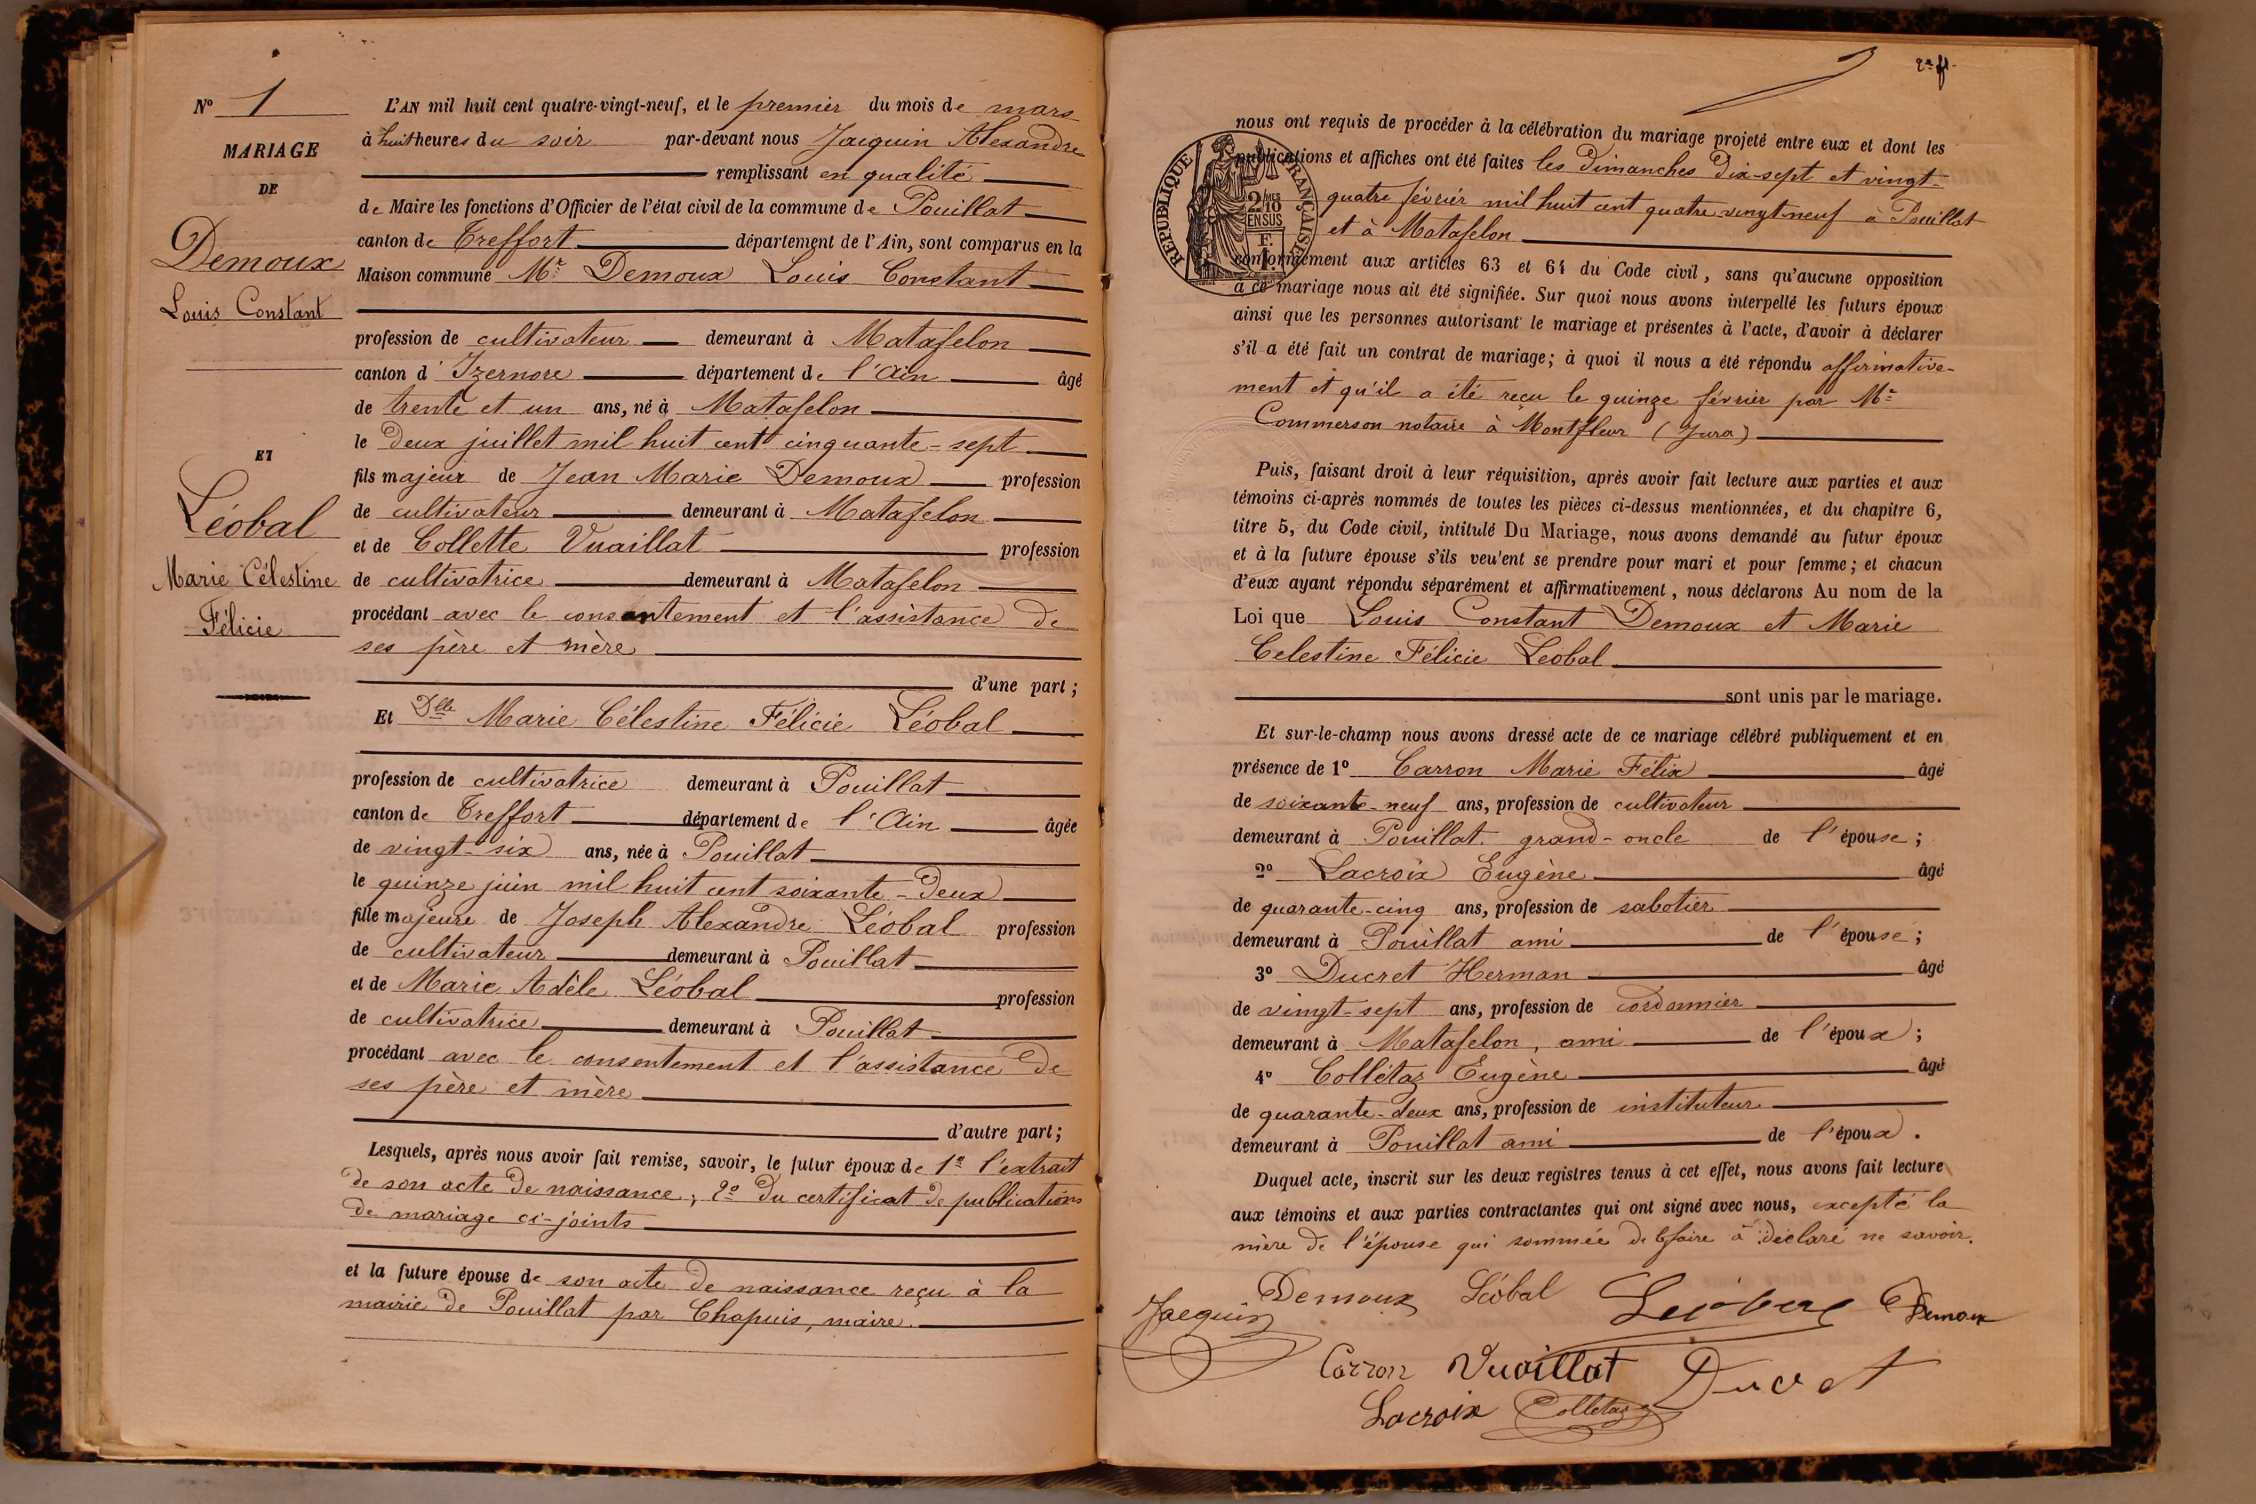 N° 1
MARIAGE
DE
Demoux
Louis Constant
ET
Léobal
Marie Célestine
Félicie
L'AN mil huit cent quatre-vingt-neuf, et le premier du mois de mars
à huit heures du soir par-devant nous Jacquin Alexandre
remplissant en qualité
de Maire les fonctions d'Officier de l'état civil de la commune de Pouillat
canton de Treffort département de l'Ain, sont comparus en la
Maison commune Mr Demoux Louis Constant
profession de cultivateur demeurant à Matafelon
canton d'Izernore département de l'Ain âgé
de trente et un ans, né à Matafelon
le deux juillet mil huit cent cinquante-sept
fils majeur de Jean Marie Demoux profession
de cultivateur demeurant à Matafelon
et de Collette Vuaillat profession
de cultivatrice demeurant à Matafelon
procédant avec le consentement et l'assistance de
ses père et mère
d'une part ;
Et Dlle Marie Célestine Félicie Léobal
profession de cultivatrice demeurant à Pouillat
canton de Treffort département de l'Ain âgée
de vingt-six ans, née à Pouillat
le quinze juin mil huit cent soixante-deux
fille majeure de Joseph Alexandre Léobal profession
de cultivateur demeurant à Pouillat
et de Marie Adèle Léobal profession
de cultivatrice demeurant à Pouillat
procédant avec le consentement et l'assistance de
ses père et mère
d'autre part ;
Lesquels, après nous avoir fait remise, savoir, le futur époux de 1° l'extrait
de son acte de naissance ; 2° du certificat de publications
de mariage ci-joints
et la future épouse de son acte de naissance reçu à la
mairie de Pouillat par Chapuis, maire.
2e ft.
nous ont requis de procéder à la célébration du mariage projeté entre eux et dont les
publications et affiches ont été faites les dimanches dix-sept et vingt-
quatre février mil huit cent quatre-vingt-neuf à Pouillat
et à Matafelon
RÉPUBLIQUE FRANÇAISE
2/10 MES
EN SUS
F.
1.
conformément aux articles 63 et 64 du Code civil, sans qu'aucune opposition
à ce mariage nous ait été signifiée. Sur quoi nous avons interpellé les futurs époux
ainsi que les personnes autorisant le mariage et présentes à l'acte, d'avoir à déclarer
s'il a été fait un contrat de mariage ; à quoi il nous a été répondu affirmative-
ment et qu'il a été reçu le quinze février par Me
Commerson notaire à Montfleur (Jura)
Puis, faisant droit à leur réquisition, après avoir fait lecture aux parties et aux
témoins ci-après nommés de toutes les pièces ci-dessus mentionnées, et du chapitre 6,
titre 5, du Code civil, intitulé Du Mariage, nous avons demandé au futur époux
et à la future épouse s'ils veu'ent se prendre pour mari et pour femme ; et chacun
d'eux ayant répondu séparément et affirmativement, nous déclarons Au nom de la
Loi que Louis Constant Demoux et Marie
Celestine Félicie Leobal
sont unis par le mariage.
Et sur-le-champ nous avons dressé acte de ce mariage célébré publiquement et en
présence de 1° Carron Marie Félix âgé
de soixante-neuf ans, profession de cultivateur
demeurant à Pouillat grand-oncle de l'épouse ;
2° Lacroix Eugène âgé
de quarante-cinq ans, profession de sabotier
demeurant à Pouillat ami de l'épouse ;
3° Ducret Herman âgé
de vingt-sept ans, profession de cordonnier
demeurant à Matafelon, ami de l'époux ;
4° Collétaz Eugène âgé
de quarante-deux ans, profession de instituteur
demeurant à Pouillat ami de l'époux.
Duquel acte, inscrit sur les deux registres tenus à cet effet, nous avons fait lecture
aux témoins et aux parties contractantes qui ont signé avec nous, excepté la
mère de l'épouse qui sommée de le faire à déclaré ne savoir.
Jacquin Demoux Léobal Leobal Demoux
Carron Vuaillat Ducret
Lacroix Colletaz